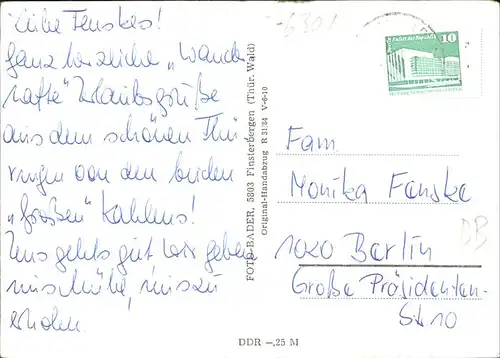 Liebe Fenskes!
Ganz herzliche „Wander
hafte" Urlaubsgrüße
aus dem schönen Thü
ringen von den beiden
„großen" Kahlens!
Uns gehts gut wir geben
uns Mühe, uns zu
erholen.
FOTO-BADER, 5803 Finsterbergen (Thür. Wald)
Original-Handabzug R 31/84 V-6-10
DDR –,25 M
10
Fam.
Monika Fenske
1020 Berlin
Große Präsidenten-
Str. 10